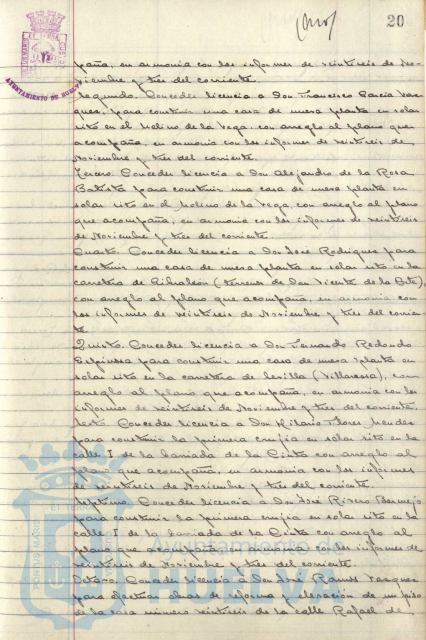 20
AYUNTAMIENTO DE HUELVA
paña, en armonia con los informes de veintiseis de No-
viembre y tres del corriente.
Segundo. Conceder licencia a Don Francisco Garcia Vas-
ques, para construir una casa de nueva planta en solar
sito en el Molino de la Vega, con arreglo al plano que
acompaña, en armonia con los informes de veintiseis de
Noviembre y tres del corriente.
Tercero. Conceder licencia a Don Alejandro de la Rosa
Batista para construir una casa de nueva planta en
solar sito en el Molino de la Vega, con arreglo al plano
que acompaña, en armonia con los informes de veintiseis
de Noviembre y tres del corriente.
Cuarto. Conceder licencia a Don José Rodriguez para
construir una casa de nueva planta en solar sito en la
carretera de Gibraleon (terrenos de San Vicente de la
con arreglo al plano que acompaña, en armonia con
los informes de veintiseis de Noviembre y tres del corrien-
te.
Quinto. Conceder licencia a Don Fernando Redondo
Espinosa para construir una casa de nueva planta en
solar sito en la carretera de Sevilla (Villarosa), con
arreglo al plano que acompaña, en armonia con los
informes de veintiseis de Noviembre y tres del corriente.
Sexto. Conceder licencia a Don Hilario Flores
para construir la primera crujia en solar sito en la
calle I de la barriada de la Cinta con arreglo al
plano que acompaña, en armonia con los informes
de veintiseis de Noviembre y tres del corriente.
Septimo. Conceder licencia a Don José Rivero Bermejo
para construir la primera crujia en solar sito en la
calle I de la barriada de la Cinta con arreglo al
plano que acompaña en armonia con los informes de
veintiseis de Noviembre y tres del corriente.
Octavo. Conceder licencia a Don José Ramos Vasques
para efectuar obras de reforma y elevación de un piso
de la casa número veintiseis de la calle Rafael de
Ayuntamiento de
HUELVA